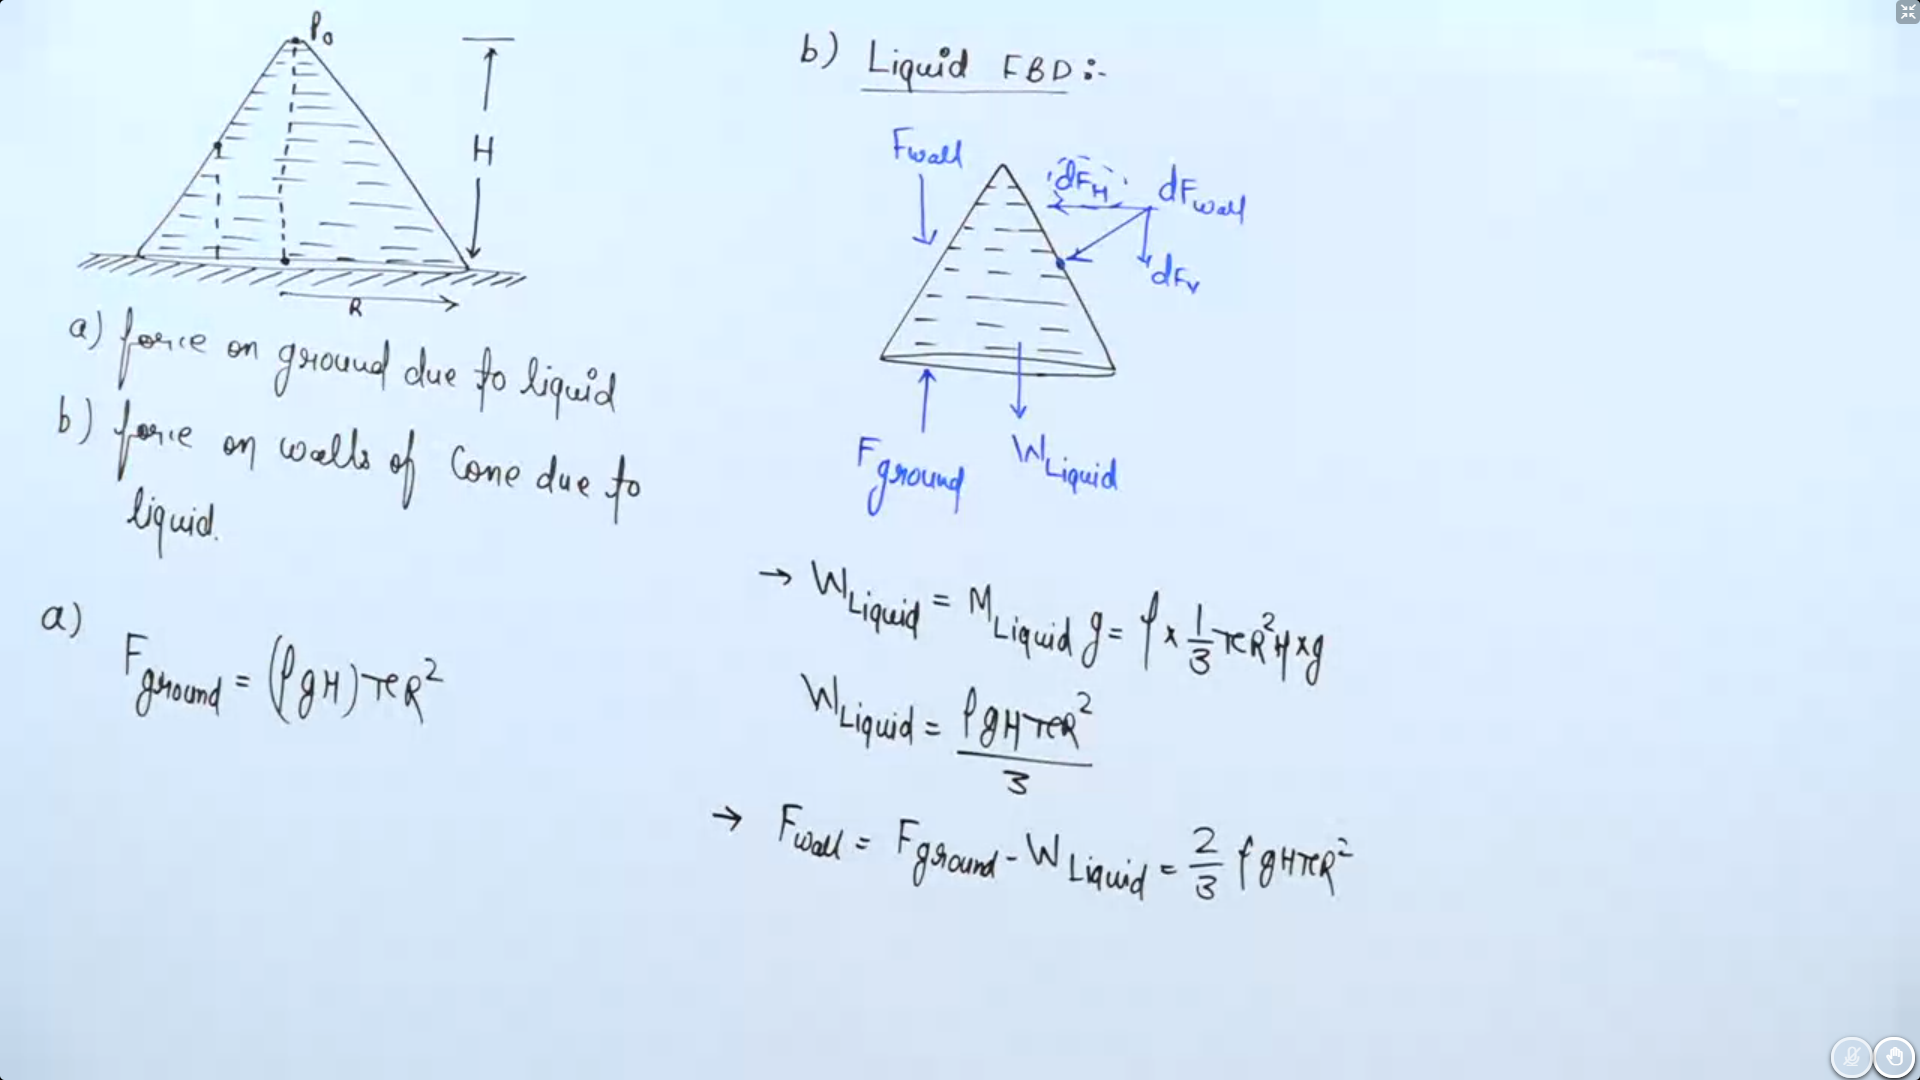 P₀
H
R
a) force on ground due to liquid
b) force on walls of Cone due to
liquid.
a)
F_ground = (ρgH)πR²
b) Liquid FBD :-
F_wall
dF_H
dF_wall
dF_v
F_ground
W_Liquid
→ W_Liquid = M_Liquid g = ρ × 1/3 πR²H × g
W_Liquid = ρgHπR²/3
→ F_wall = F_ground - W_Liquid = 2/3 ρgHπR²